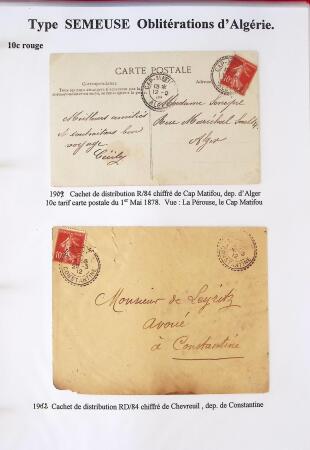 Type SEMEUSE Oblitérations d'Algérie.
10c rouge
CARTE POSTALE
Correspondance
Adresse
CAP-MATIFOU
ALGER
Meilleures amitiés
et souhaitons bon
voyage
Cécile
Madame
Rue Maréchal Soult, 4
Alger
1909 Cachet de distribution R/84 chiffré de Cap Matifou, dep. d'Alger
10c tarif carte postale du 1er Mai 1878. Vue : La Pérouse, le Cap Matifou
12
CONSTANTINE
12
CONSTANTINE
Monsieur de Leyritz
avoué
à Constantine
1912 Cachet de distribution RD/84 chiffré de Chevreuil , dep. de Constantine